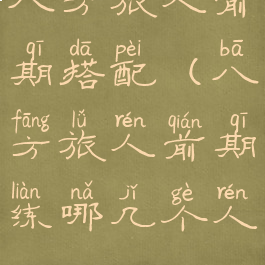 八方旅人前
qī dā pèi bā
期搭配（八
fāng lǚ rén qián qī
方旅人前期
liàn nǎ jǐ gè rén
练哪几个人